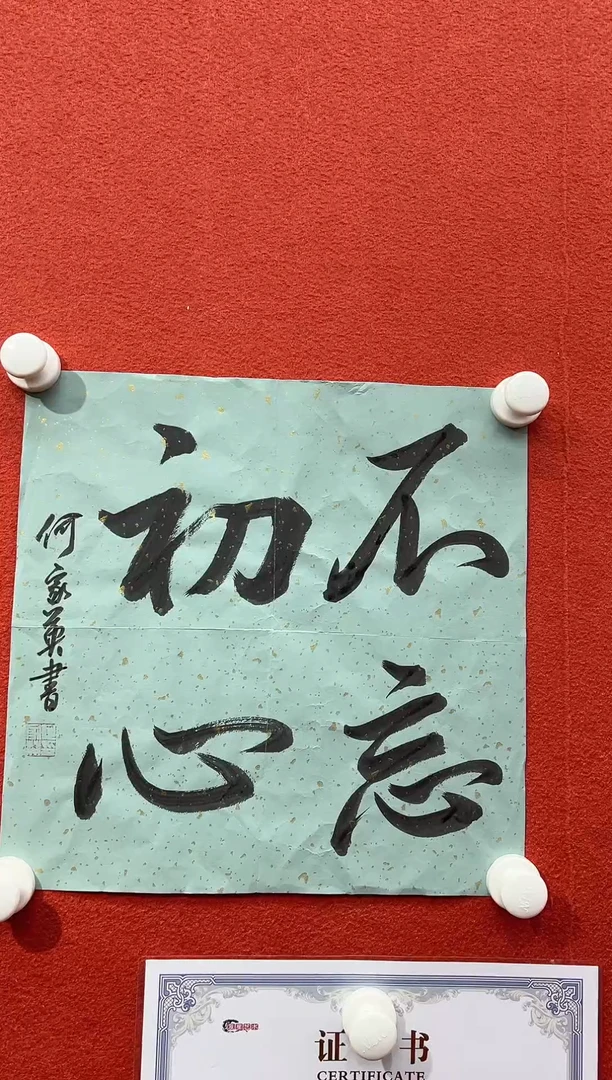 不忘
初心
何家英書
证书
CERTIFICATE